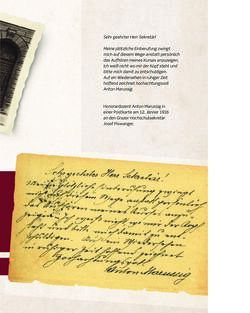 Sehr geehrter Herr Sekretär!
Meine plötzliche Einberufung zwingt
mich auf diesem Wege anstatt persönlich
das Aufhören meines Kurses anzuzeigen.
Ich weiß nicht wo mir der Kopf steht und
bitte mich damit zu entschuldigen.
Auf ein Wiedersehen in ruhiger Zeit
hoffend zeichnet hochachtungsvoll
Anton Marussig
Honorardozent Anton Marussig in
einer Postkarte am 12. Jänner 1916
an den Grazer Hochschulsekretär
Josef Piswanger.
Sehr geehrter Herr Sekretär!
Meine plötzliche Einberufung zwingt
mich auf diesem Wege anstatt persönlich
das Aufhören meines Kurses anzu-
zeigen. Ich weiß nicht wo mir der Kopf
steht und bitte mich damit zu ent-
schuldigen. Auf ein Wiedersehen
in ruhiger Zeit hoffend zeichnet
hochachtungsvoll
Anton Marussig